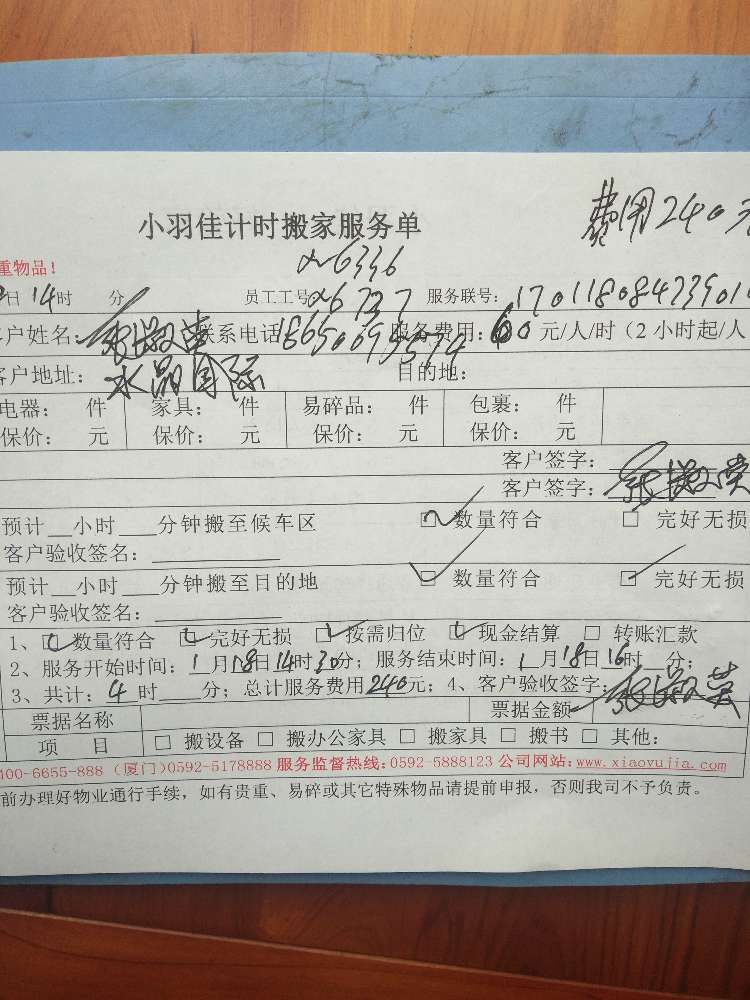 费用240元
小羽佳计时搬家服务单
26336
重物品!
日14时 分 员工工号26737 服务联号:
客户姓名: 张淑英 联系电话 服务费用:60元/人/时(2小时起/人
客户地址: 水晶国际 目的地:
电器: 件 家具: 件 易碎品: 件 包裹: 件
保价: 元 保价: 元 保价: 元 保价: 元
客户签字:
客户签字: 张淑英
预计__小时___分钟搬至候车区 ☑数量符合 □ 完好无损
客户验收签名:
预计__小时___分钟搬至目的地 ☑数量符合 ☑ 完好无损
客户验收签名:
1、☑数量符合 ☑完好无损 ☑按需归位 ☑现金结算 □ 转账汇款
2、服务开始时间:1月18日14时30分;服务结束时间:1月18日16时__分;
3、共计:4时___分;总计服务费用240元;4、客户验收签字:张淑英
票据名称 票据金额
项 目 □ 搬设备 □ 搬办公家具 □ 搬家具 □ 搬书 □ 其他:
400-6655-888 (厦门)0592-5178888 服务监督热线:0592-5888123 公司网站:www.xiaoyujia.com
前办理好物业通行手续,如有贵重、易碎或其它特殊物品请提前申报,否则我司不予负责。